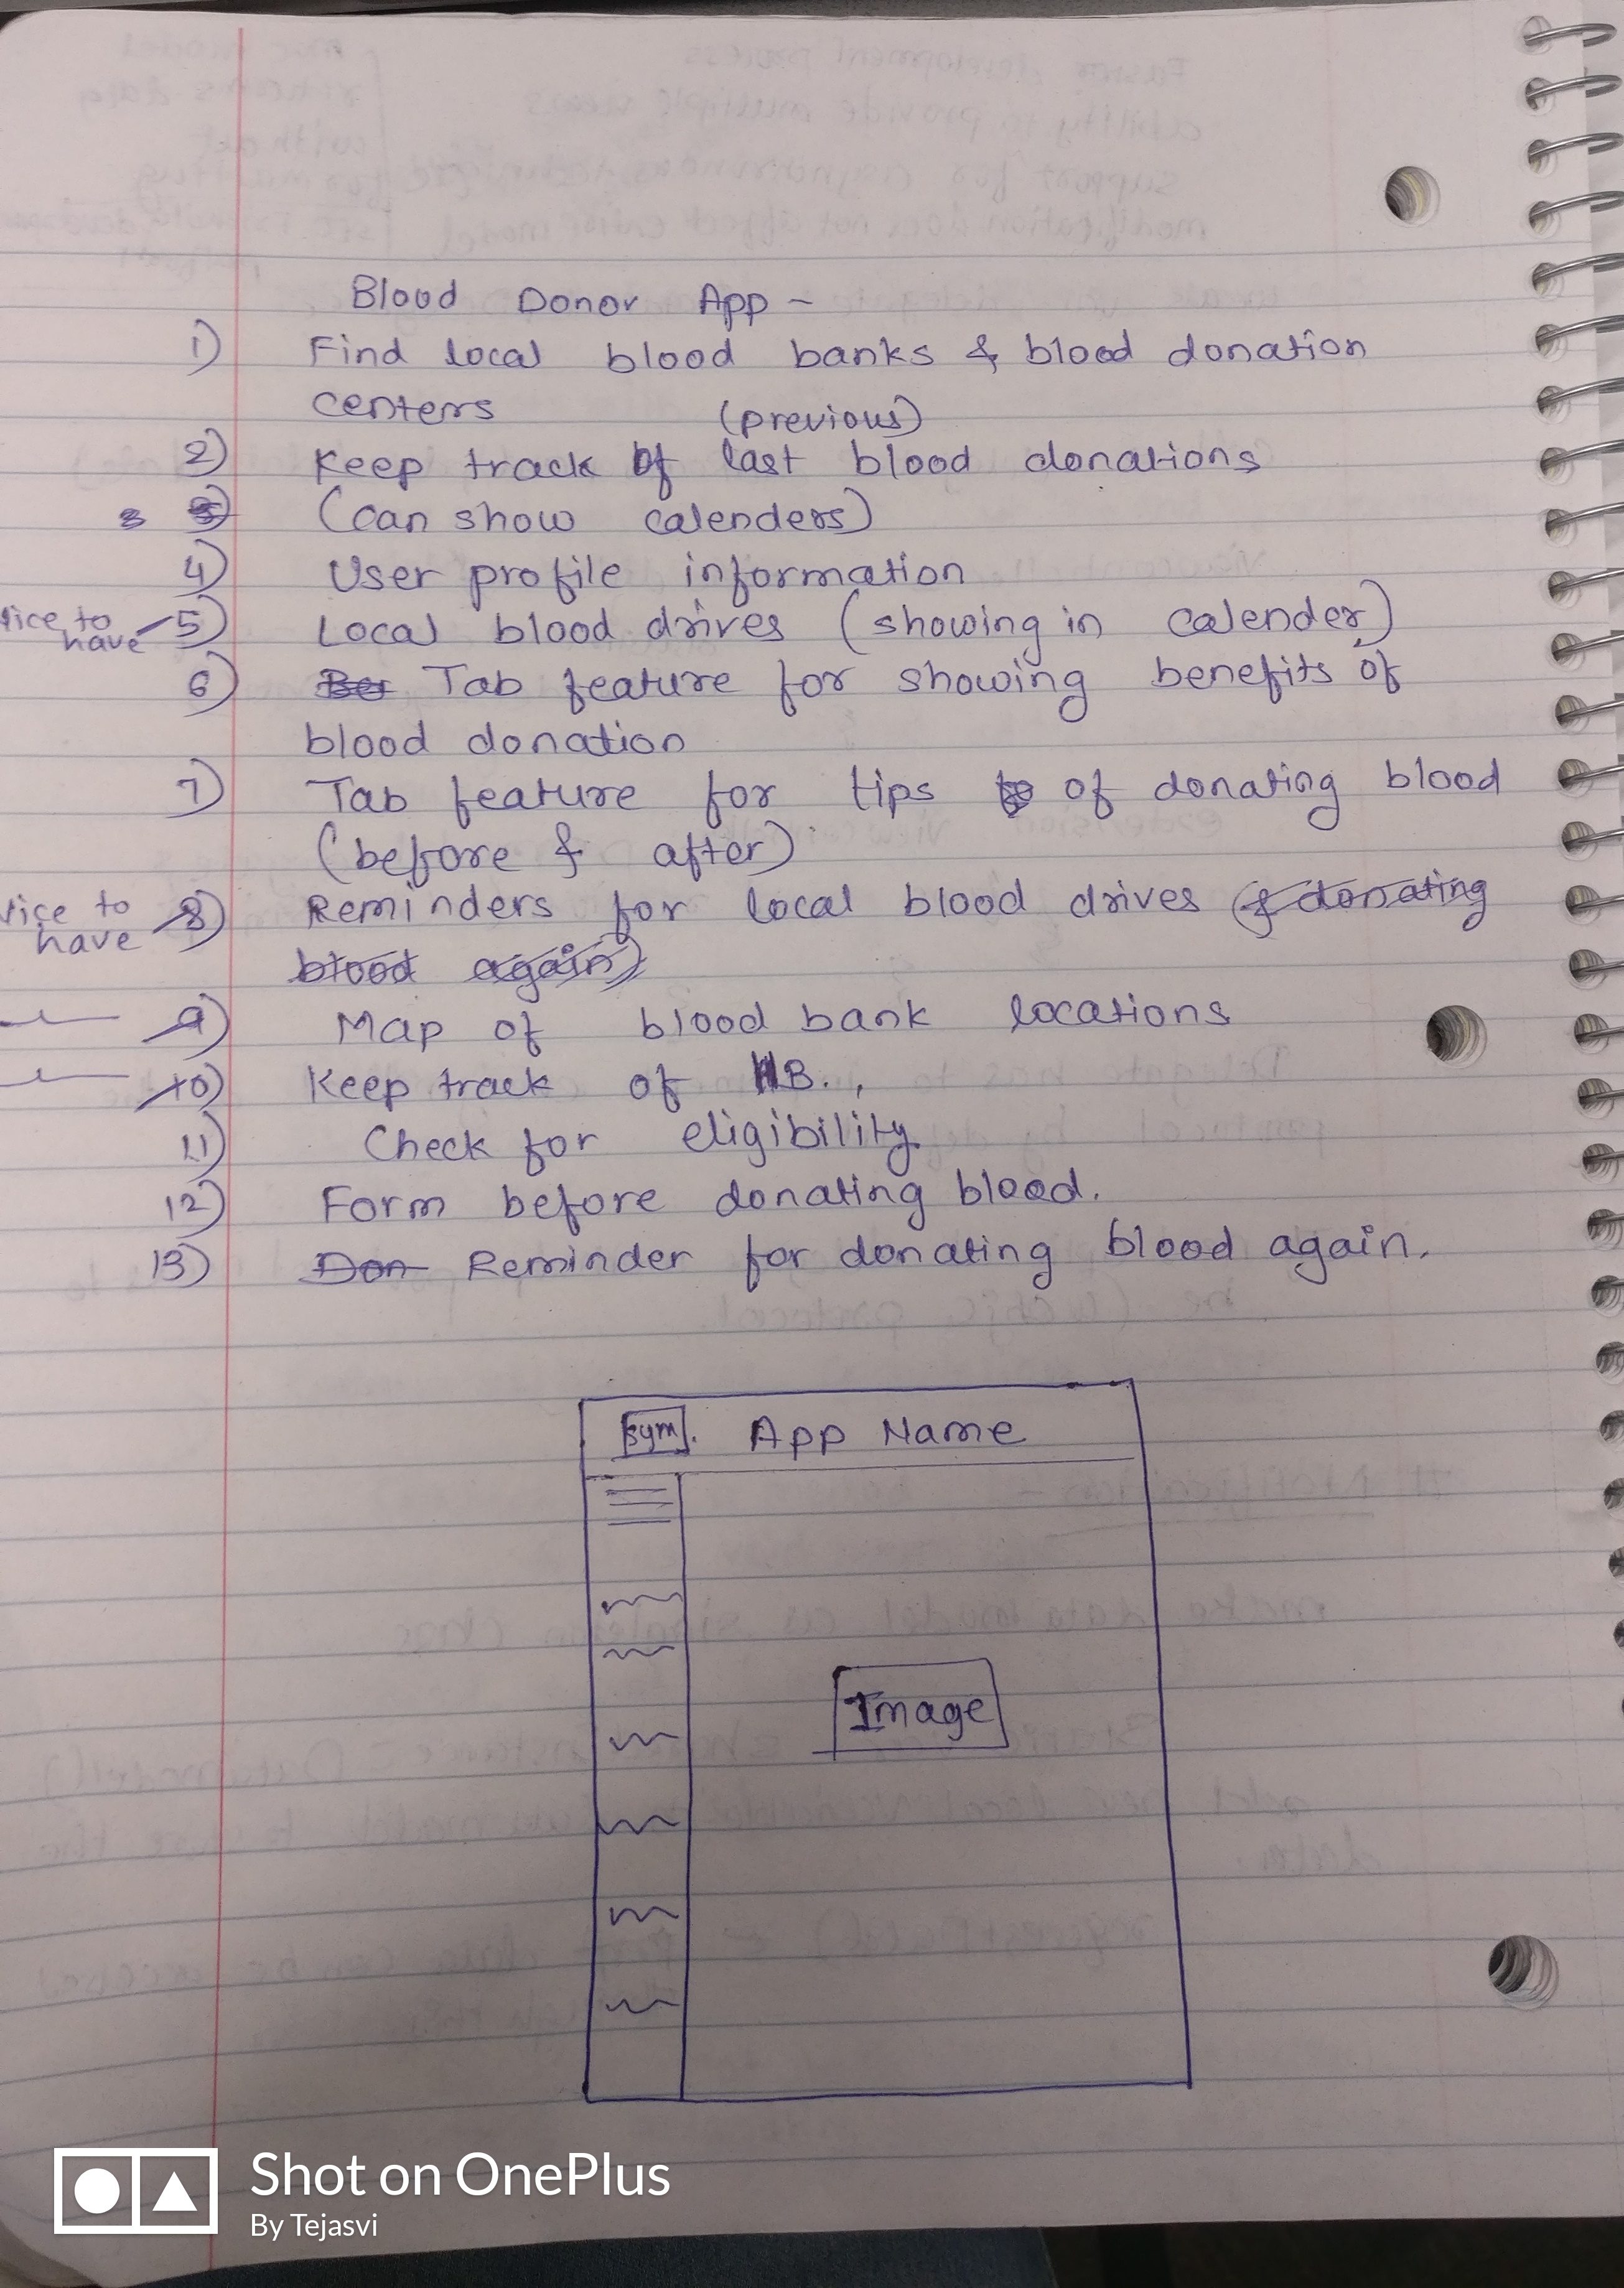 Blood Donor App -
1) Find local blood banks & blood donation
centers
(previous)
2) Keep track of last blood donations
3 (can show calenders)
4) User profile information
Nice to have 5) Local blood drives (showing in calender)
6) Tab feature for showing benefits of
blood donation
7) Tab feature for tips of donating blood
(before & after)
Nice to have 8) Reminders for local blood drives (& donating
blood again)
9) Map of blood bank locations
10) Keep track of HB.,
11) Check for eligibility
12) Form before donating blood.
13) Don Reminder for donating blood again.
Sym. App Name
Image
Shot on OnePlus
By Tejasvi